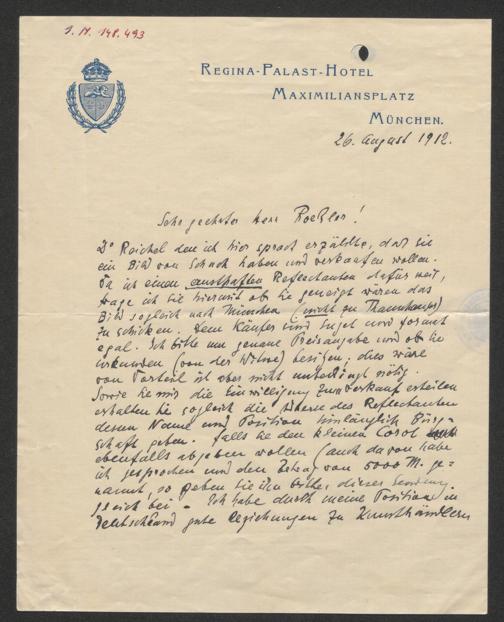 I. N. 148.493
REGINA-PALAST-HOTEL
MAXIMILIANSPLATZ
MÜNCHEN.
26. August 1912.
Sehr geehrter Herr Roeßler!
Dr Reichel den ich hier sprach erzählte, daß sie
ein Bild von Schuch haben und verkaufen wollen.
Da ich einen ernsthaften Reflectanten dafür weiß,
frage ich sie hiermit ob sie geneigt wären das
Bild sogleich nach München (nicht zu Thannhauser)
zu schicken. Dem Käufer sind Sujet und Format
egal. Ich bitte um genaue Preisangabe und ob sie
Urkunden (von der Witwe) besitzen; dies wäre
von Vorteil ist aber nicht unbedingt nötig.
Sowie sie mir die Einwilligung zum Verkauf erteilen
erhalten sie sogleich die Adresse des Reflectanten
dessen Name und Position hinlänglich Bürg-
schaft geben. Falls sie den kleinen Corot
ebenfalls abgeben wollen (auch davon habe
ich gesprochen und den Betrag von 5000 M. ge-
nannt, so geben sie ihn bitte dieser Sendung
gleich bei. – Ich habe durch meine Position in
Deutschland gute Beziehungen zu Kunsthändlern